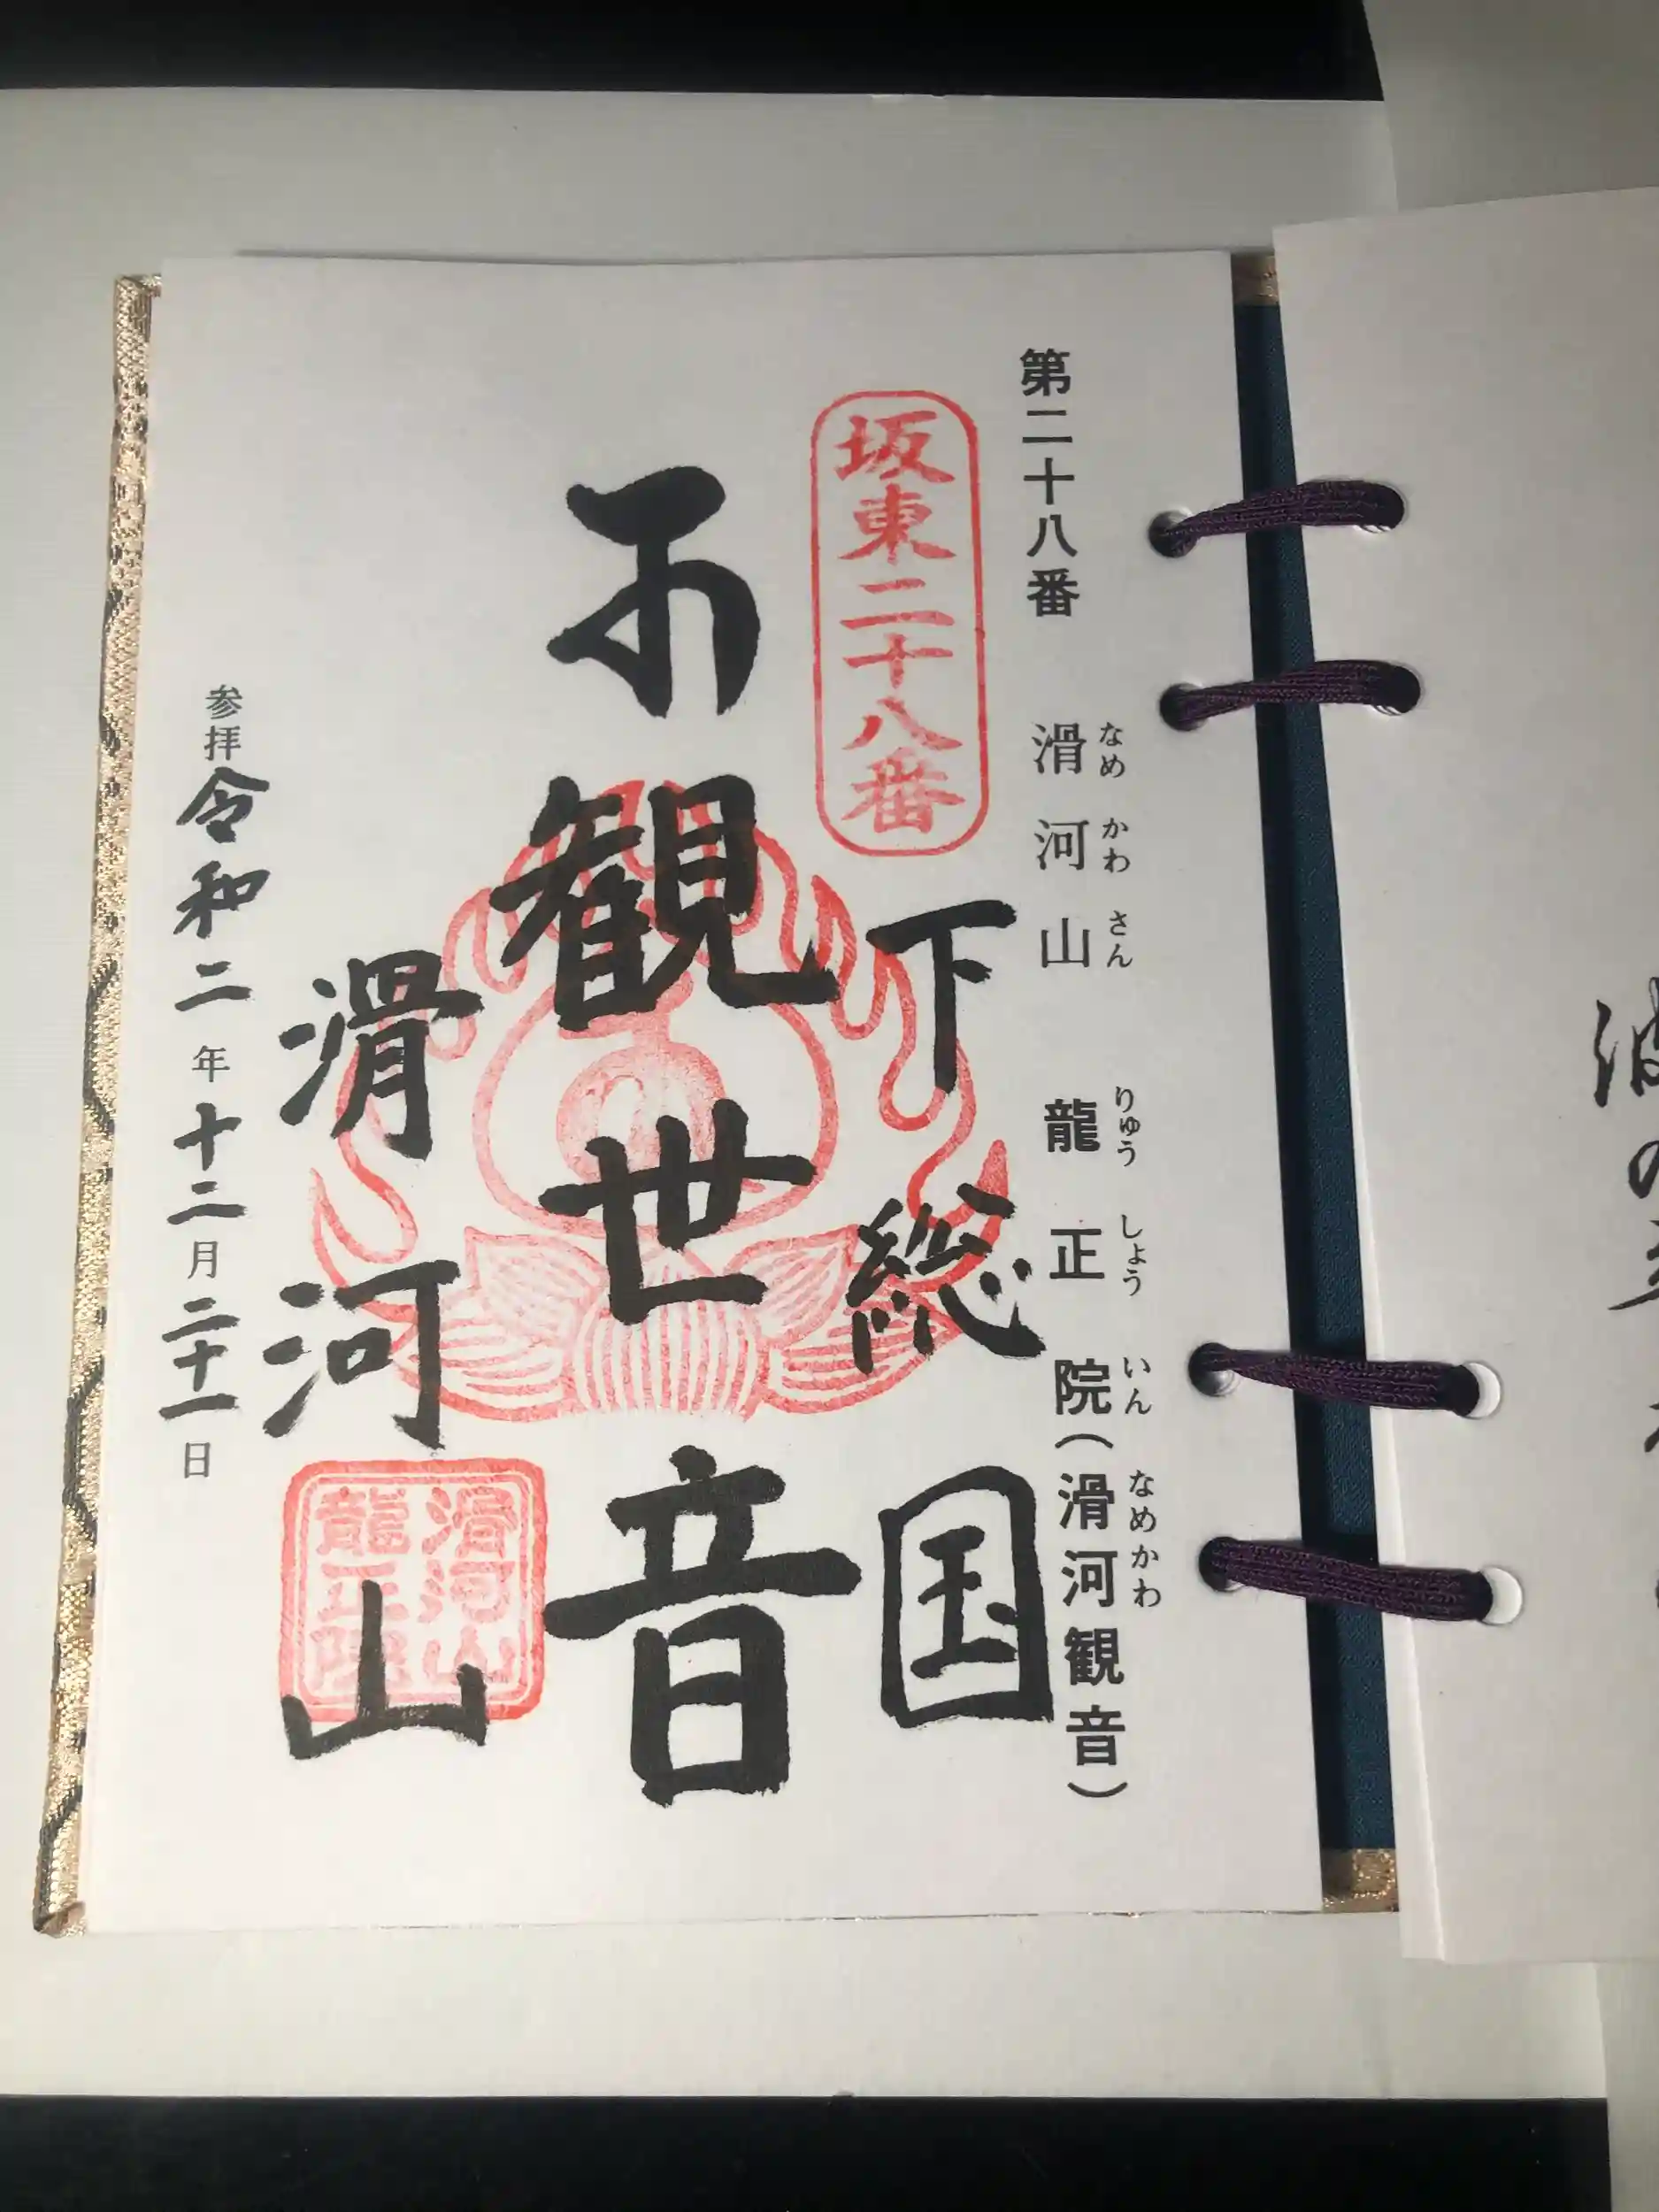 第二十八番 滑河山 龍正院(滑河観音)
なめ かわ さん りゅう しょう いん なめかわ
坂東二十八番
下総国
観世音
滑河山
滑河山
龍正院
参拝令和二年十二月二十一日